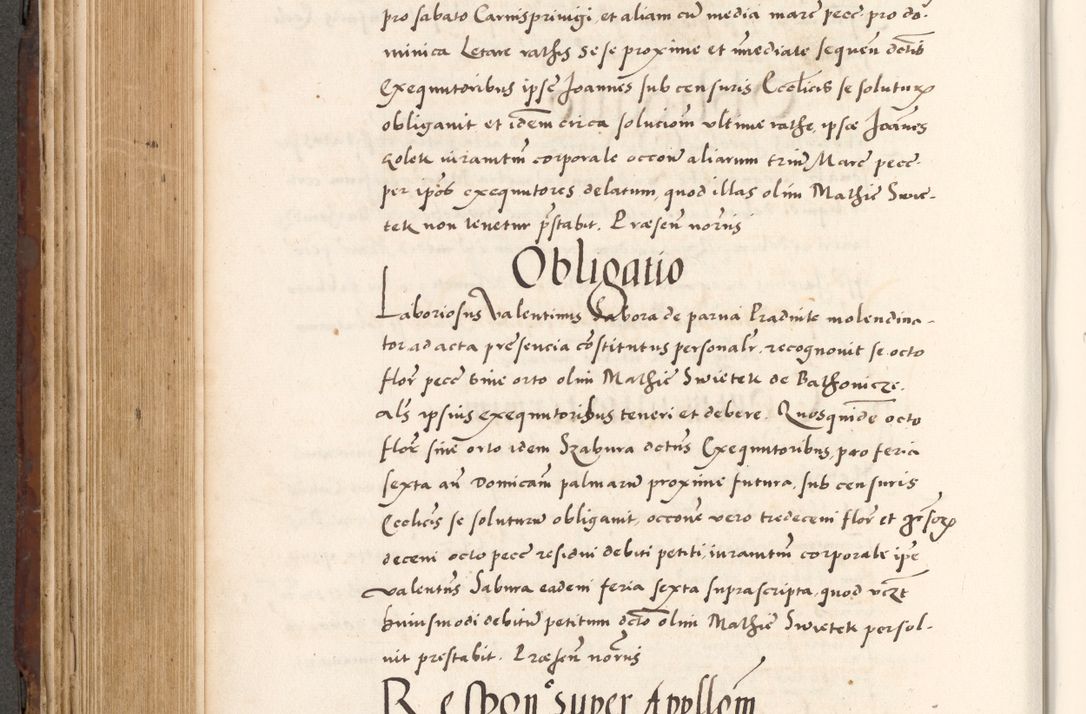 pro sabato Carnisprivigi, et aliam cū media marc̄ pecc̄ pro do-
minica Letare rathis sese proxime et īmediate sequeñ dictis
Exequutoribus ipse Joannes sub censuris Eccĺicis se soluturū
obligauit et idem circa solucioñ vltime rathe, ipse Joānes
Golek iuramtm̄ corporale occoñe aliarum triū Marc̄ pecc̄
per ip̄os exequutores delatum, quod illas olim Mathie Swie-
tek non tenetur p̄stabit. Præseñ nor̄iis
Obligatio
Laboriosus Valentinus Sabora de parua Pradnite molendina-
tor ad acta presencia cōstitutus personalr̄, recognouit se octo
flor̄ pecc̄ siue orto olim Mathie Swietek de Bathonicze,
als̄ ipsius exequutoribus teneri et debere. Quosquidē octo
flor̄ siue orto idem Szabura dictis Exequutoribus, pro feria
sexta añ Domicam̄ palmarū proxime futura, sub censuris
Eccĺicis se soluturū obligauit, occoñe vero tredecem flor̄ et grossorū
decem octo pecc̄ residui debiti petiti, iuramtm̄ corporale ip̄e
valentinus Sabura eadem feria sexta suprascripta, quod vcz̄t
huiusmodi debitū petitum dicto olim Mathie Swietek persol-
uit prestabit. Præseñ nor̄iis
Respon. Super Appllom̄